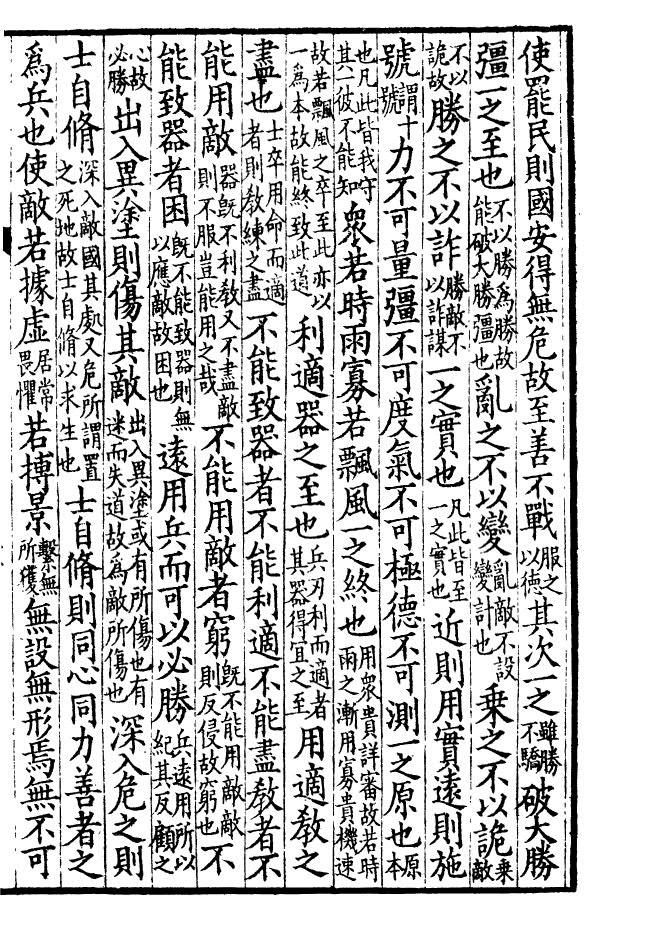 使罷民則國安得無危故至善不戰服之以德其次一之雖勝不驕破大勝
彊一之至也不以勝為勝故能破大勝彊也亂之不以變亂敵不設變計也乘之不以詭乘敵
不以詭故勝之不以詐勝敵不以詐謀一之實也凡此皆至一之實也近則用實遠則施
號謂十號力不可量彊不可度氣不可極德不可測一之原也原本
也凡此皆我守其一彼不能知衆若時雨寡若飄風一之終也用衆貴詳審故若時雨之漸用寡貴機速
故若飄風之卒至此亦以一為本故能終致此道利適器之至也兵刃利而適者其器得宜之至用適敎之
盡也士卒用命而適者則敎練之盡不能致器者不能利適不能盡敎者不
能用敵器旣不利敎又不盡敵則不服豈能用之哉不能用敵者窮旣不能用敵敵則反侵故窮也不
能致器者困旣不能致器則無以應敵故困也遠用兵而可以必勝兵遠用所以紀其反顧之
心故必勝出入異塗則傷其敵出入異塗或有所傷也有迷而失道故為敵所傷也深入危之則
士自脩深入敵國其處又危所謂置之死地故士自脩以求生也士自脩則同心同力善者之
爲兵也使敵若據虛居常畏懼若搏景繫無所獲無設無形焉無不可